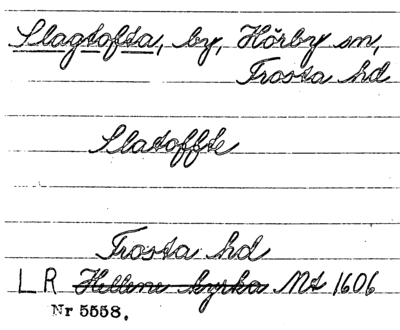 Slagtofta, by, Hörby sn,
Frosta hd
Slatoffte
Frosta hd
LR Hellene kyrka Mt 1606
Nr 5558.